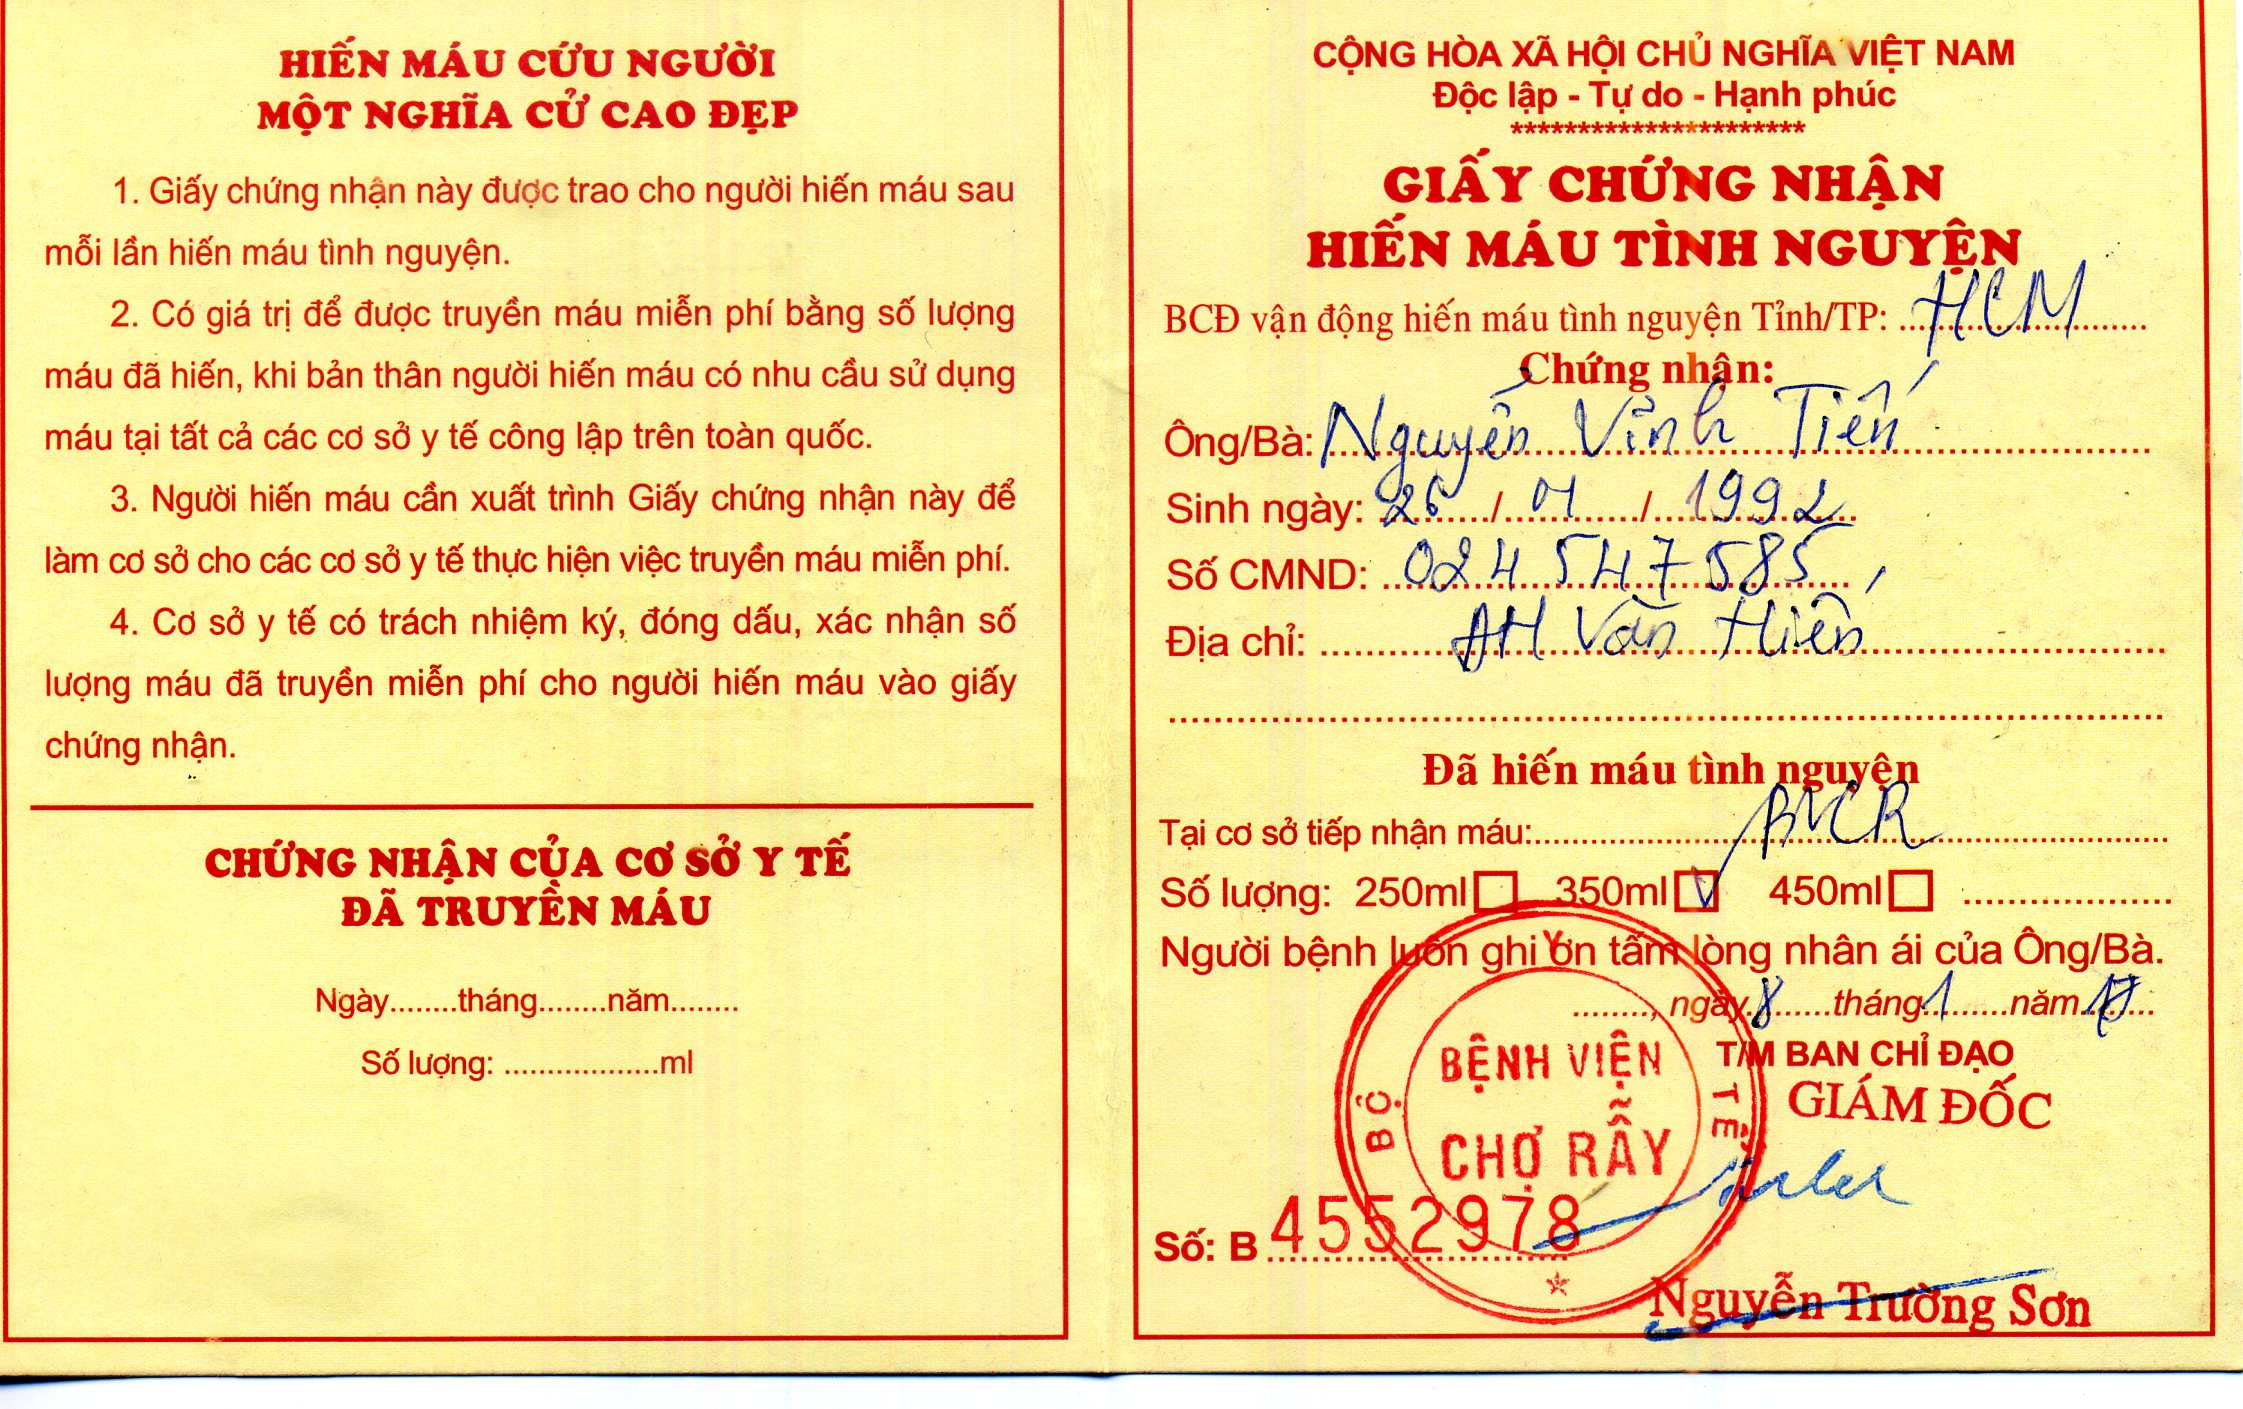 HIẾN MÁU CỨU NGƯỜI
MỘT NGHĨA CỬ CAO ĐẸP
1. Giấy chứng nhận này được trao cho người hiến máu sau
mỗi lần hiến máu tình nguyện.
2. Có giá trị để được truyền máu miễn phí bằng số lượng
máu đã hiến, khi bản thân người hiến máu có nhu cầu sử dụng
máu tại tất cả các cơ sở y tế công lập trên toàn quốc.
3. Người hiến máu cần xuất trình Giấy chứng nhận này để
làm cơ sở cho các cơ sở y tế thực hiện việc truyền máu miễn phí.
4. Cơ sở y tế có trách nhiệm ký, đóng dấu, xác nhận số
lượng máu đã truyền miễn phí cho người hiến máu vào giấy
chứng nhận.
CHỨNG NHẬN CỦA CƠ SỞ Y TẾ
ĐÃ TRUYỀN MÁU
Ngày........tháng........năm........
Số lượng: ..................ml
CỘNG HÒA XÃ HỘI CHỦ NGHĨA VIỆT NAM
Độc lập - Tự do - Hạnh phúc
**********************
GIẤY CHỨNG NHẬN
HIẾN MÁU TÌNH NGUYỆN
BCĐ vận động hiến máu tình nguyện Tỉnh/TP: HCM
Chứng nhận:
Ông/Bà: Nguyễn Vĩnh Tiến
Sinh ngày: 26 / 01 / 1992
Số CMND: 024547585
Địa chỉ: ĐH Văn Hiến
Đã hiến máu tình nguyện
Tại cơ sở tiếp nhận máu: BVCR
Số lượng: 250ml 350ml 450ml
Người bệnh luôn ghi ơn tấm lòng nhân ái của Ông/Bà.
........, ngày 8 tháng 1 năm 17
T/M BAN CHỈ ĐẠO
GIÁM ĐỐC
BỘ Y TẾ
BỆNH VIỆN
CHỢ RẪY
Số: B 4552978
Nguyễn Trường Sơn